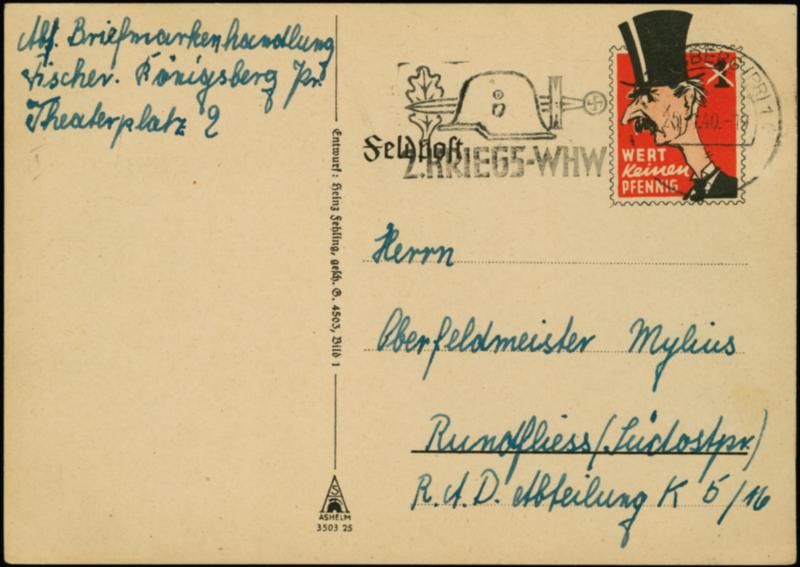 Abs. Briefmarkenhandlung
Fischer. Königsberg Pr.
Theaterplatz 2
Feldpost
2. KRIEGS-WHW
WERT
keinen
PFENNIG
Entwurf: Heinz Fehling, gesch. G. 4503, Bild 1
Herrn
Oberfeldmeister Mylius
Rundfliess (Südostpr.)
R.A.D. Abteilung K 5/16
ASHELM
3503 25